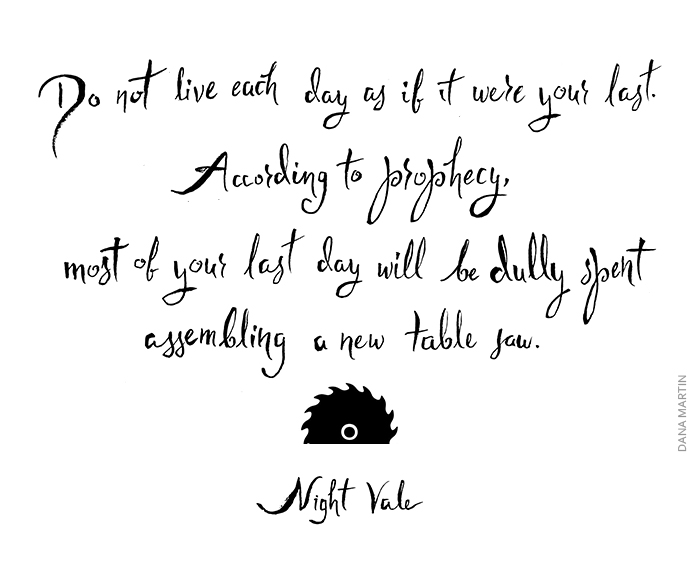 Do not live each day as if it were your last.
According to prophecy,
most of your last day will be dully spent
assembling a new table saw.
Night Vale
DANA MARTIN